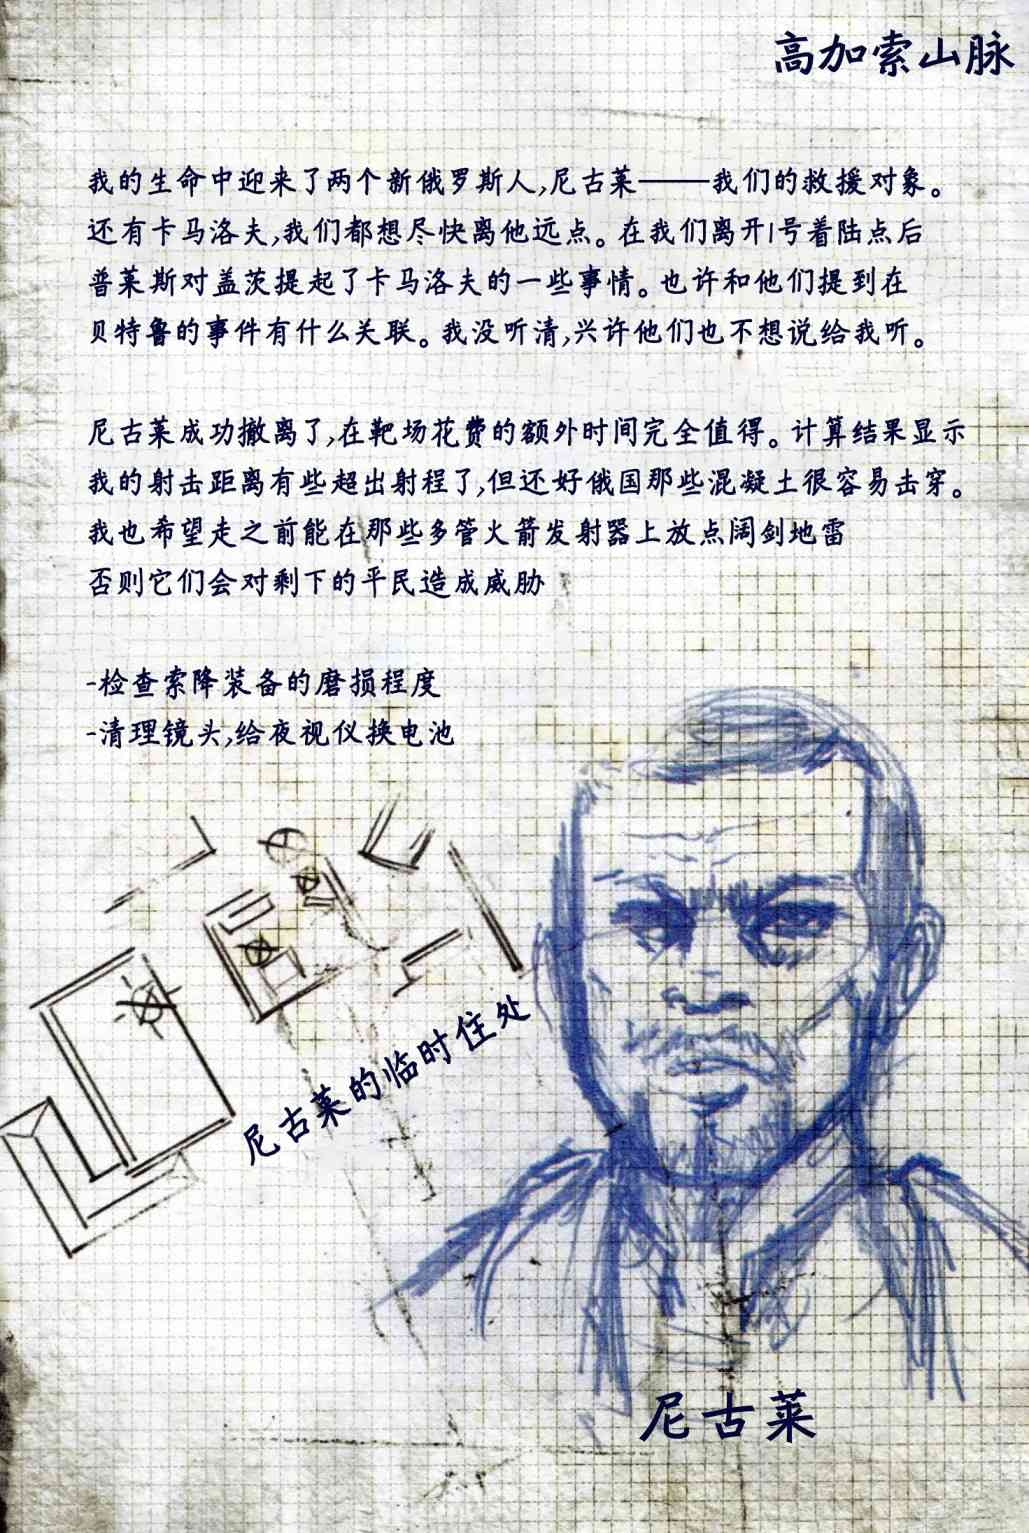 高加索山脉
我的生命中迎来了两个新俄罗斯人,尼古莱——我们的救援对象。
还有卡马洛夫,我们都想尽快离他远点。在我们离开1号着陆点后
普莱斯对盖茨提起了卡马洛夫的一些事情。也许和他们提到在
贝特鲁的事件有什么关联。我没听清,兴许他们也不想说给我听。
尼古莱成功撤离了,在靶场花费的额外时间完全值得。计算结果显示
我的射击距离有些超出射程了,但还好俄国那些混凝土很容易击穿。
我也希望走之前能在那些多管火箭发射器上放点阔剑地雷
否则它们会对剩下的平民造成威胁
-检查索降装备的磨损程度
-清理镜头,给夜视仪换电池
尼古莱的临时住处
尼古莱